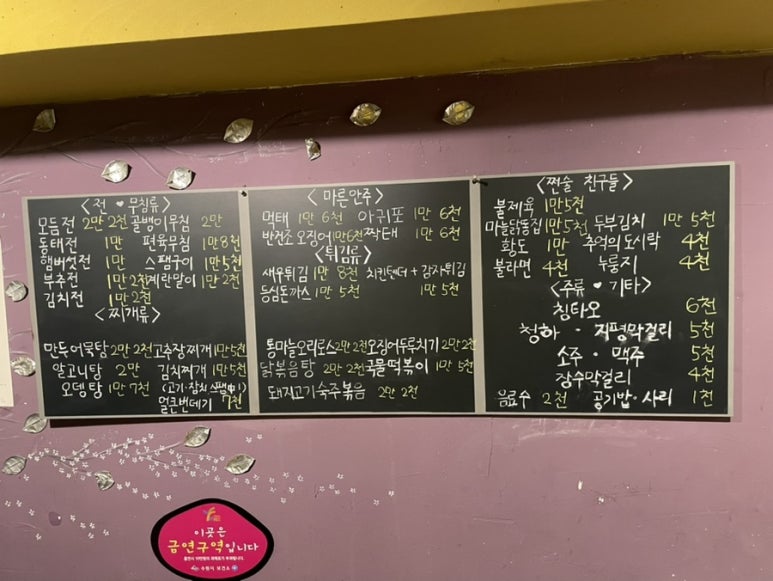 <전 ♥ 무침류>
모듬전 2만 2천 골뱅이무침 2만
동태전 1만 편육무침 1만8천
햄버섯전 1만 스팸구이 1만5천
부추전 1만2천 계란말이 1만 2천
김치전 1만 2천
<찌개류>
만두어묵탕 2만 2천 고추장찌개 1만5천
알고니탕 2만 김치찌개 1만5천
오뎅탕 1만 7천 (고기·참치·스팸中1)
얼큰번데기 7천
<마른안주>
먹태 1만 6천 아귀포 1만 6천
반건조 오징어 1만6천 짝태 1만 6천
<튀김류>
새우튀김 1만 8천 치킨텐더 + 감자튀김
등심돈까스 1만 5천 1만 5천
통마늘오리로스 2만 2천 오징어두루치기 2만 2천
닭볶음탕 2만 2천 국물떡볶이 1만 5천
돼지고기숙주볶음 2만 2천
<쩐술 친구들>
불제육 1만5천
마늘닭똥집 1만5천 두부김치 1만 5천
황도 1만 추억의 도시락 4천
불라면 4천 누룽지 4천
<주류 · 기타>
칭타오 6천
청하 · 지평막걸리 5천
소주 · 맥주 5천
장수막걸리 4천
음료수 2천 공기밥·사리 1천
이곳은
금연구역입니다
수원시 보건소